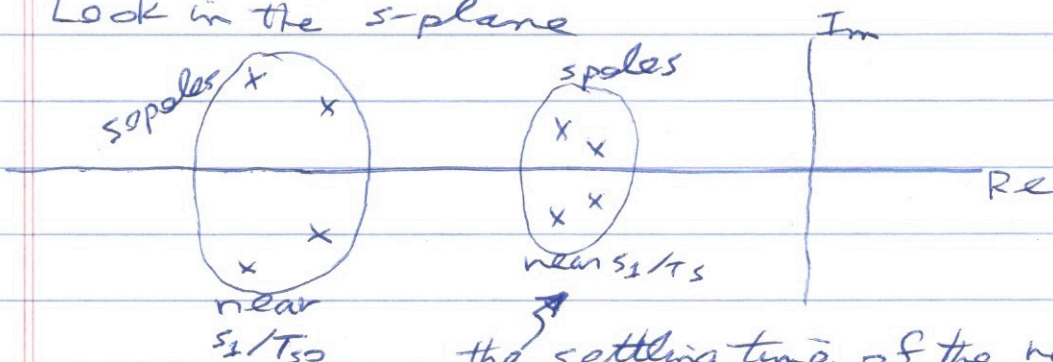 Look in the s-plane
Im
sopoles
spoles
Re
near s1/Ts
near
s1/Tso
the settling time of the